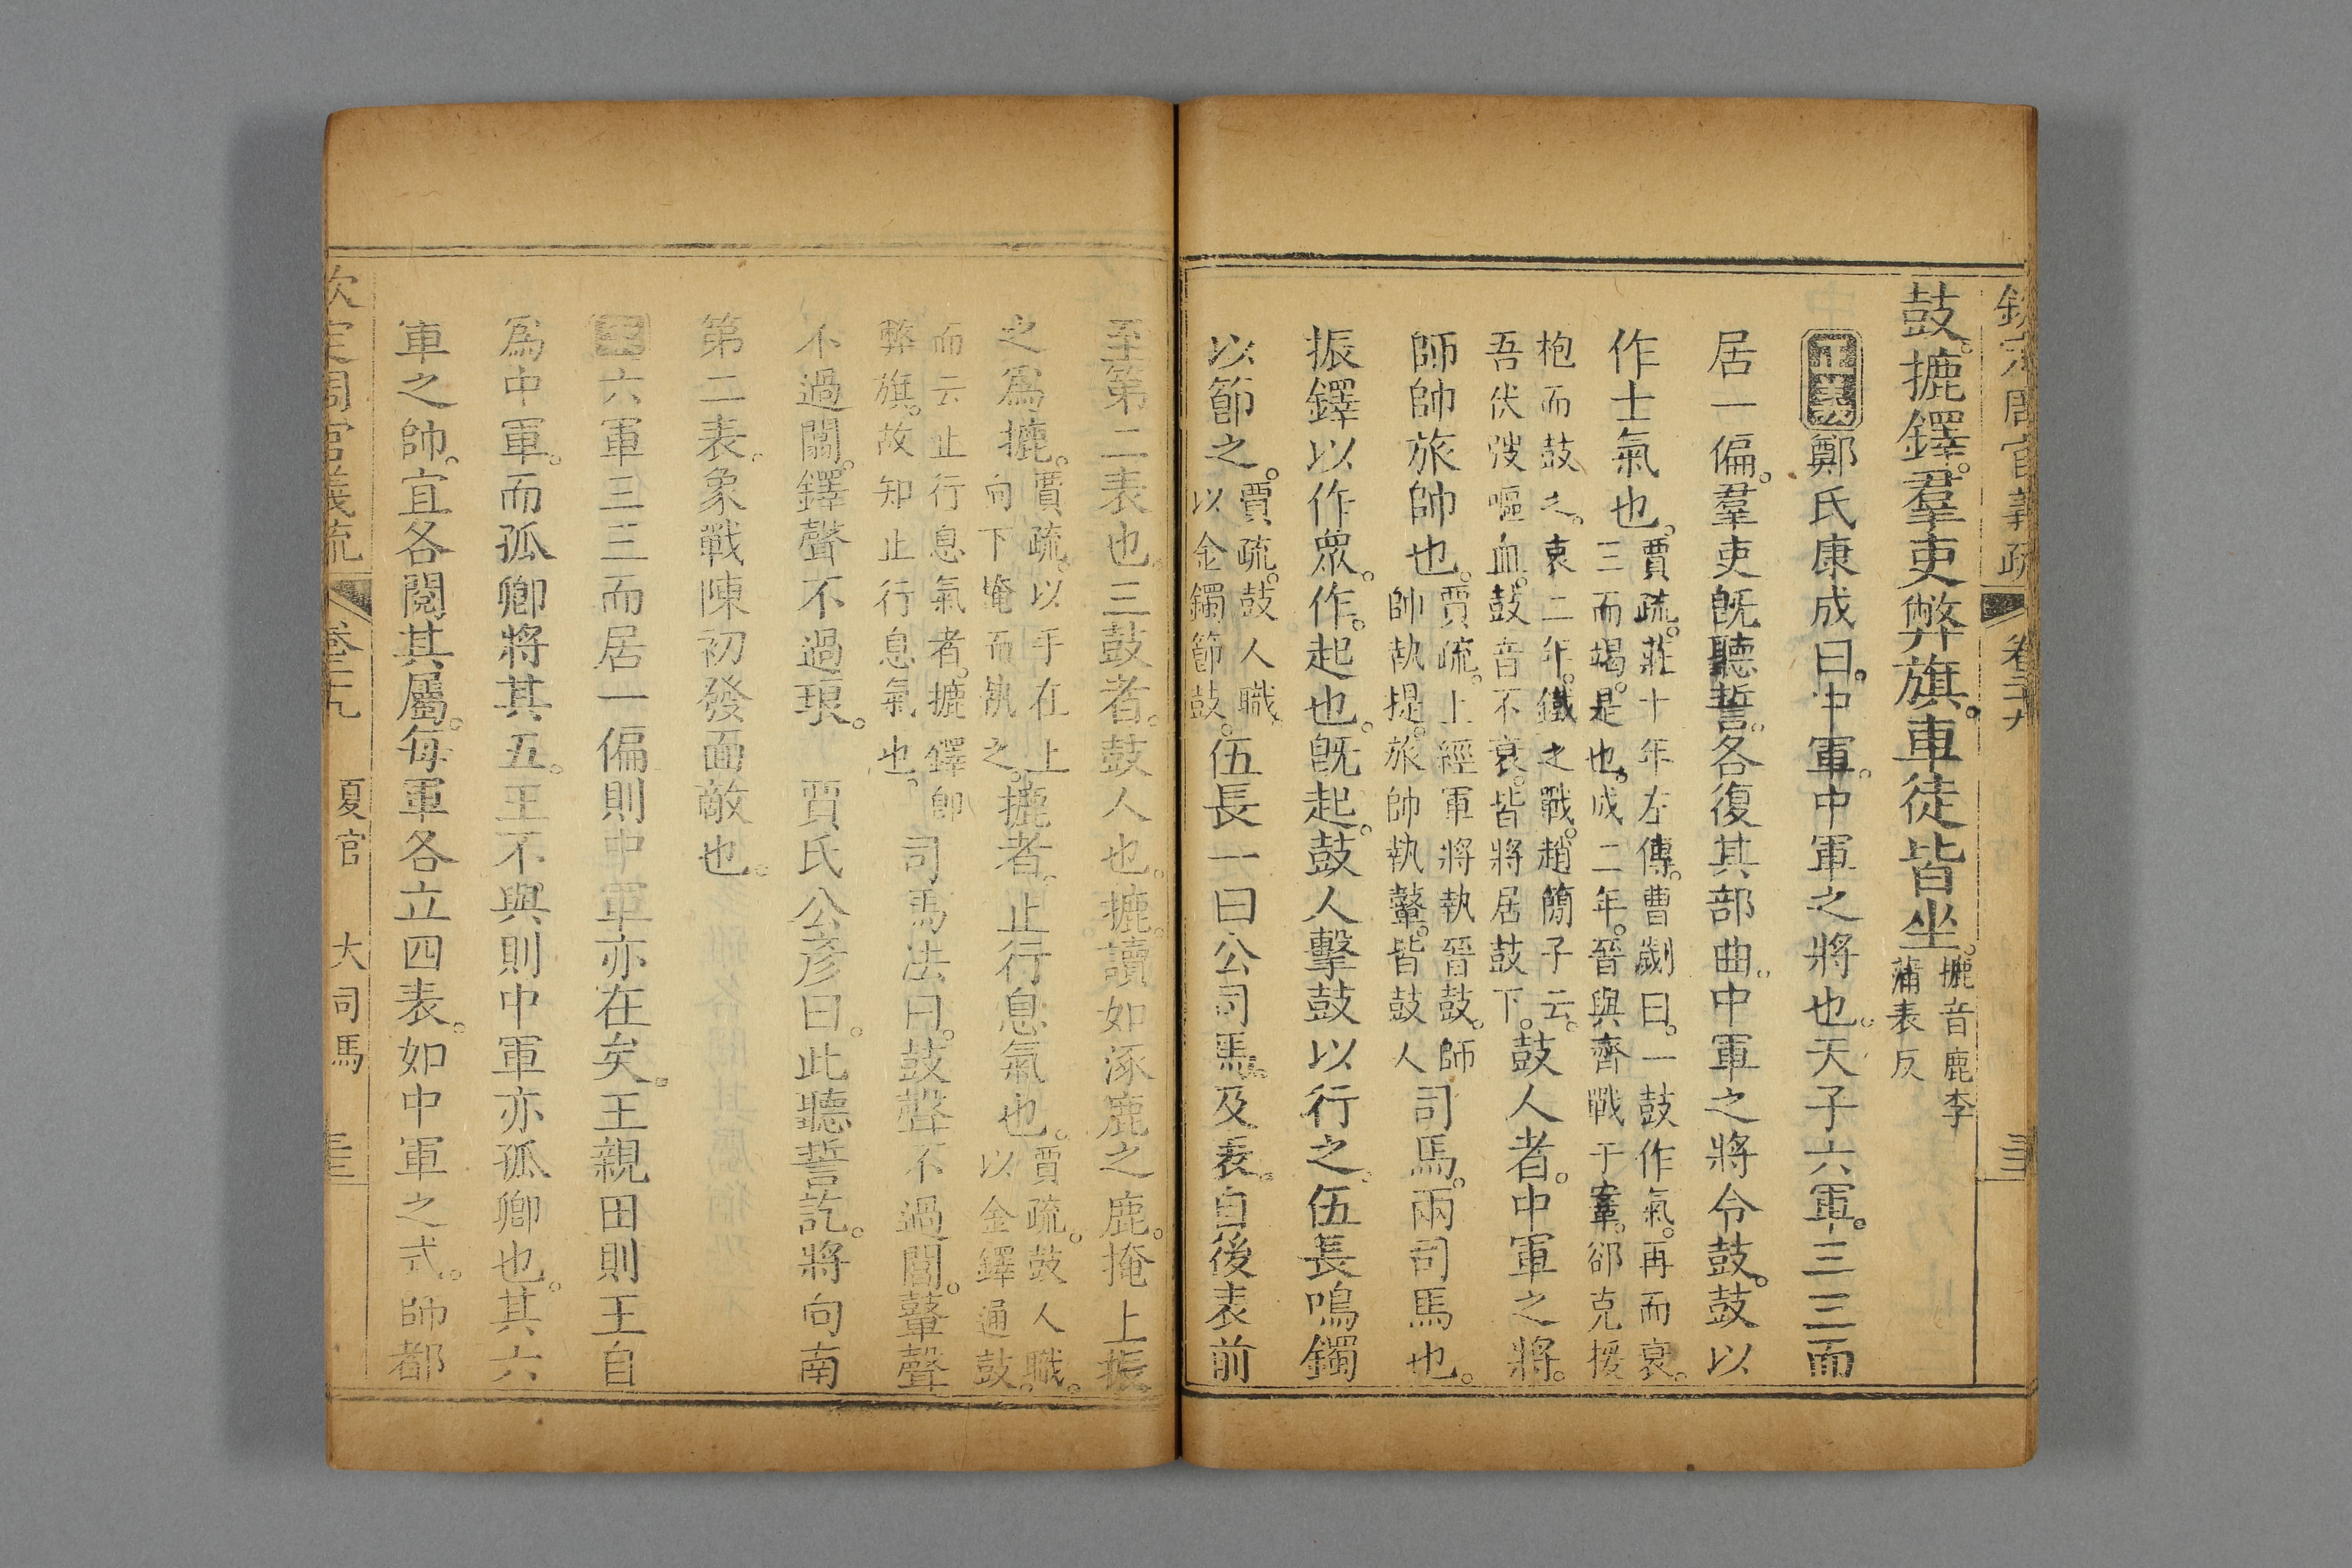 欽定周官義疏 卷二十九
鼓摝鐸羣吏弊旗車徒皆坐。摝音鹿李
蒲表反
正義鄭氏康成曰。中軍。中軍之將也。天子六軍。三三而
居一偏。羣吏旣聽誓。各復其部曲。中軍之將令鼓。鼓以
作士氣也。賈疏。莊十年左傳。曹劌曰。一鼓作氣。再而衰。
三而竭。是也。成二年。晉與齊戰于鞌。郤克援
枹而鼓之。哀二年。鐵之戰。趙簡子云。
吾伏弢嘔血。鼓音不衰。皆將居鼓下。鼓人者。中軍之將。
師帥旅帥也。賈疏。上經軍將執晉鼓。師
帥執提。旅帥執鼙。皆鼓人司馬。兩司馬也。
振鐸以作衆。作。起也。旣起。鼓人擊鼓以行之。伍長鳴鐲
以節之。賈疏。鼓人職。
以金鐲節鼓。伍長一曰公司馬。及表。自後表前
至第二表也。三鼓者。鼓人也。摝。讀如涿鹿之鹿。掩上振
之爲摝。賈疏。以手在上
向下掩而執之。摝者。止行息氣也。賈疏。鼓人職。
以金鐸通鼓。
而云止行息氣者。摝鐸卽
弊旗。故知止行息氣也。司馬法曰。鼓聲不過閶。鼙聲
不過闒。鐸聲不過琅。 賈氏公彥曰。此聽誓訖。將向南
第二表。象戰陳初發面敵也。
六軍三三而居一偏則中軍亦在矣。王親田則王自
爲中軍。而孤卿將其五。王不與則中軍亦孤卿也。其六
軍之帥。宜各閱其屬。每軍各立四表。如中軍之式。師都
欽定周官義疏 卷二十九 夏官 大司馬